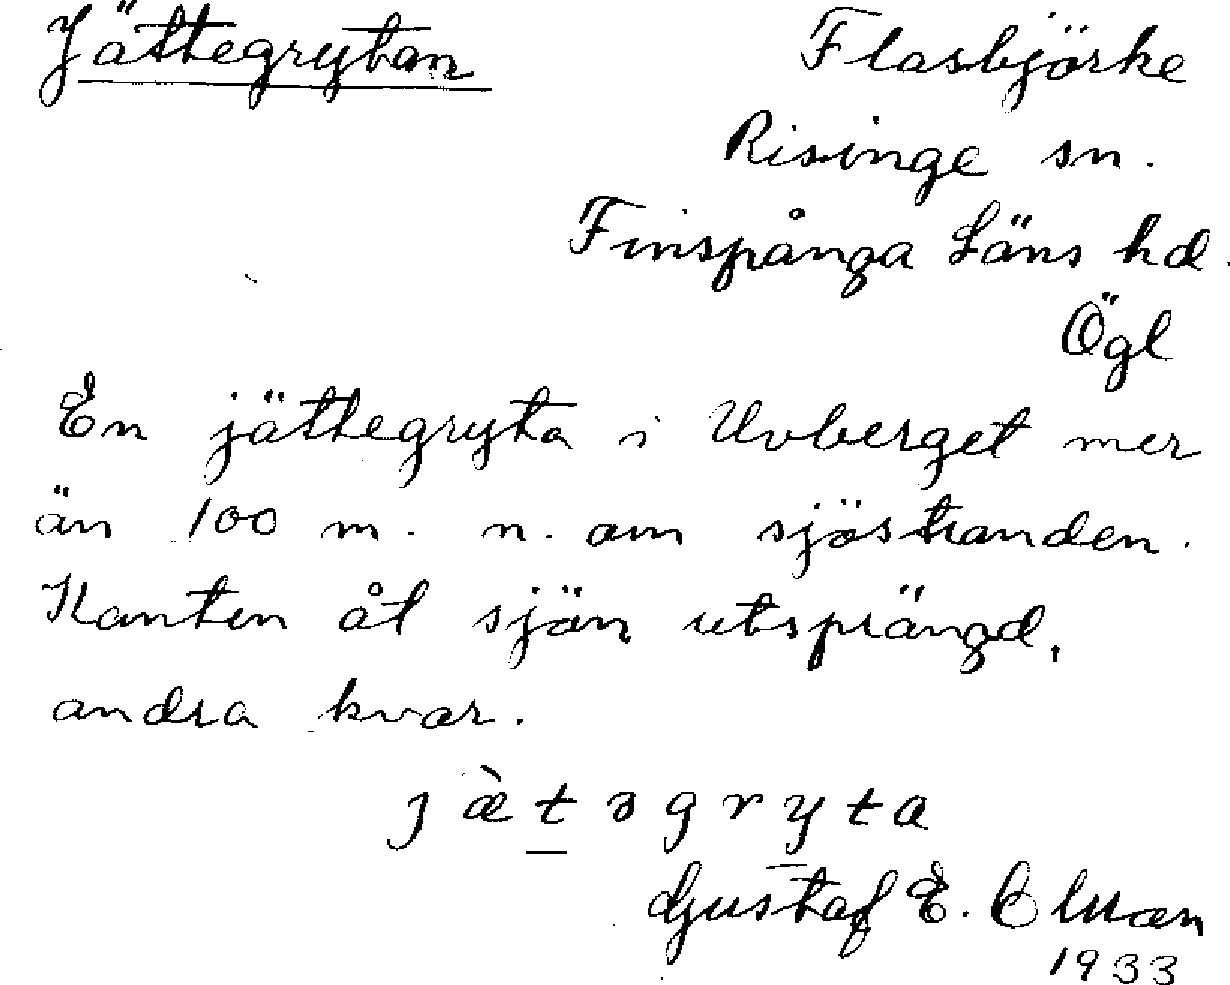 Jättegrytan Flasbjörke
Risinge sn.
Finspånga Läns hd.
Ögl
En jättegryta i Uvberget mer
än 100 m. n. om sjöstranden.
Kanten åt sjön utsprängd,
andra kvar.
jæ̀təgryta
Gustaf E.
1933